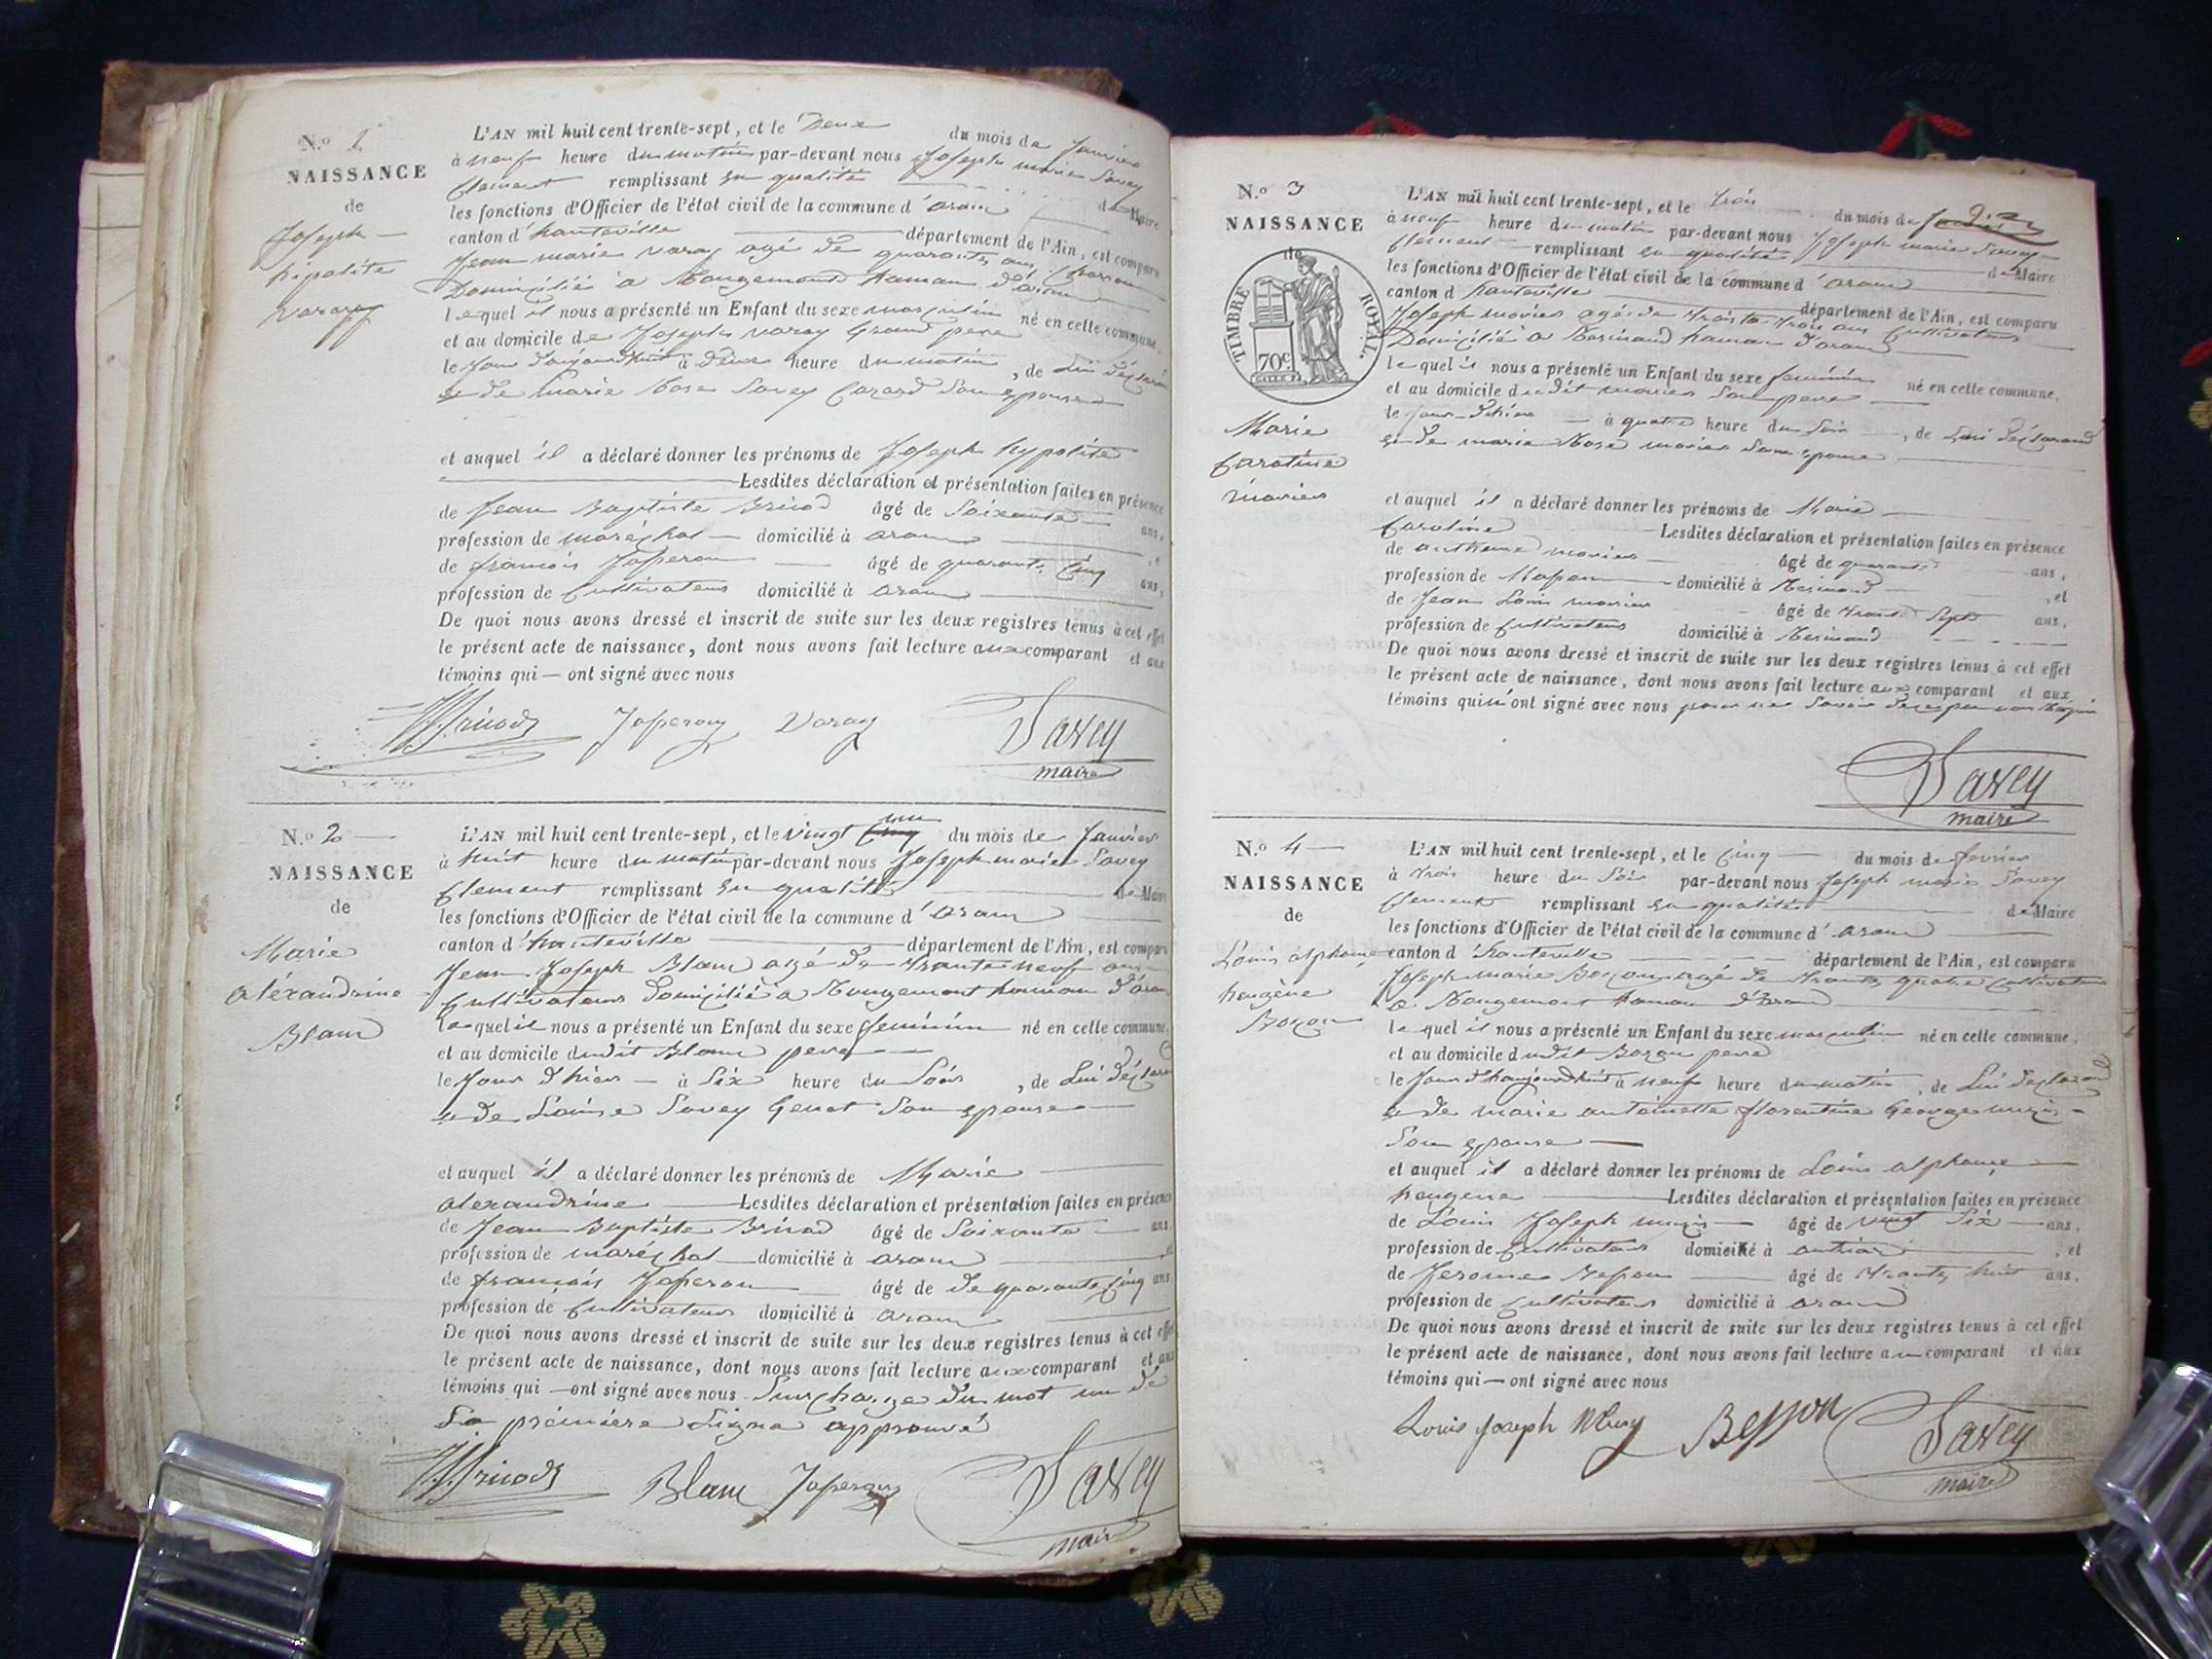 N.o 1
NAISSANCE
de
Joseph
hipolite
Varay
L'AN mil huit cent trente-sept, et le Deux du mois de Janvier
à neuf heure du matin par-devant nous Joseph marie Savey
Clement remplissant en qualité de Maire
les fonctions d'Officier de l'état civil de la commune d'aran
canton d'hauteville département de l'Ain, est comparu
Jean marie varay agé de quarante ans
Domicilié à Rougemont hamau d'aran
lequel il nous a présenté un Enfant du sexe masculin né en cette commune,
et au domicile de Joseph varay Grand pere
le Jour d'aujourdhuit à Deux heure du matin, de Lui déclarant
et de marie Rose Savey Son epouse
et auquel il a déclaré donner les prénoms de Joseph hypolite
Lesdites déclaration et présentation faites en présence
de Jean Baptiste Brucod âgé de Soixante ans,
profession de maréchal domicilié à aran
de françois Joperon âgé de quarante Cinq ans,
profession de Cultivateur domicilié à aran
De quoi nous avons dressé et inscrit de suite sur les deux registres tenus à cet effet
le présent acte de naissance, dont nous avons fait lecture aux comparant et aux
témoins qui — ont signé avec nous
Varay Savey
maire
N.o 2
NAISSANCE
de
Marie
alexandrine
Blanc
L'AN mil huit cent trente-sept, et le vingt un du mois de Janvier
à huit heure du matin par-devant nous Joseph marie Savey
Clement remplissant en qualité de Maire
les fonctions d'Officier de l'état civil de la commune d'aran
canton d'hauteville département de l'Ain, est comparu
Jean Joseph Blanc agé de trante neuf ans
Cultivateur Domicilié a Rougemont hamau d'aran
lequel il nous a présenté un Enfant du sexe feminin né en cette commune,
et au domicile dudit Blanc pere
le Jour d'hier à Six heure du Soir, de Lui déclarant
et de Louise Savey Genet Son epouse
et auquel il a déclaré donner les prénoms de Marie
alexandrine Lesdites déclaration et présentation faites en présence
de Jean Baptiste Brucod âgé de Soixante ans
profession de maréchal domicilié à aran
de françois Joperon âgé de de quarante Cinq ans
profession de Cultivateur domicilié à aran
De quoi nous avons dressé et inscrit de suite sur les deux registres tenus à cet effet
le présent acte de naissance, dont nous avons fait lecture aux comparant et aux
témoins qui — ont signé avec nous Surcharge du mot un de
La première Ligne approuvé
Blanc Savey
maire
N.o 3
NAISSANCE
TIMBRE ROYAL.
70c
Marie
Caroline
L'AN mil huit cent trente-sept, et le trois du mois de
à neuf heure du matin par-devant nous Joseph marie Savey
Clement remplissant en qualité de Maire
les fonctions d'Officier de l'état civil de la commune d'aran
canton d hauteville département de l'Ain, est comparu
Joseph agé de trante trois ans Cultivateur
Domicilié a Resinand hamau d'aran
lequel il nous a présenté un Enfant du sexe feminin né en cette commune,
et au domicile dudit Son pere
le Jour d'hier à quatre heure du Soir, de Lui déclarant
et de marie Rose Son epouse
et auquel il a déclaré donner les prénoms de Marie
Caroline Lesdites déclaration et présentation faites en présence
de âgé de quarante ans,
profession de Masson domicilié à Resinand, et
de Jean Louis âgé de trante Sept ans,
profession de Cultivateur domicilié à Resinand
De quoi nous avons dressé et inscrit de suite sur les deux registres tenus à cet effet
le présent acte de naissance, dont nous avons fait lecture aux comparant et aux
témoins qui n'ont signé avec nous pour ne Savoir
Savey
maire
N.o 4
NAISSANCE
de
Louis alphonce
heugène
Bozon
L'AN mil huit cent trente-sept, et le Cinq du mois de fevrier
à trois heure du Soir par-devant nous Joseph marie Savey
Clement remplissant en qualité de Maire
les fonctions d'Officier de l'état civil de la commune d'aran
canton d'hauteville département de l'Ain, est comparu
Joseph Marie Bozon agé de trante quatre Cultivateur
a Rougemont hamau d'aran
lequel il nous a présenté un Enfant du sexe masculin né en cette commune,
et au domicile dudit Bozon pere
le Jour d'haujourdhuit à neuf heure du matin, de Lui declarant
et de marie antoinette florentine George
Son epouse
et auquel il a déclaré donner les prénoms de Louis alphonce
heugene Lesdites déclaration et présentation faites en présence
de Louis Joseph âgé de vingt Six ans,
profession de Cultivateur domicilié à, et
de Jerome Besson âgé de trante huit ans,
profession de Cultivateur domicilié à aran
De quoi nous avons dressé et inscrit de suite sur les deux registres tenus à cet effet
le présent acte de naissance, dont nous avons fait lecture au comparant et aux
témoins qui — ont signé avec nous
Louis Joseph Besson Savey
maire